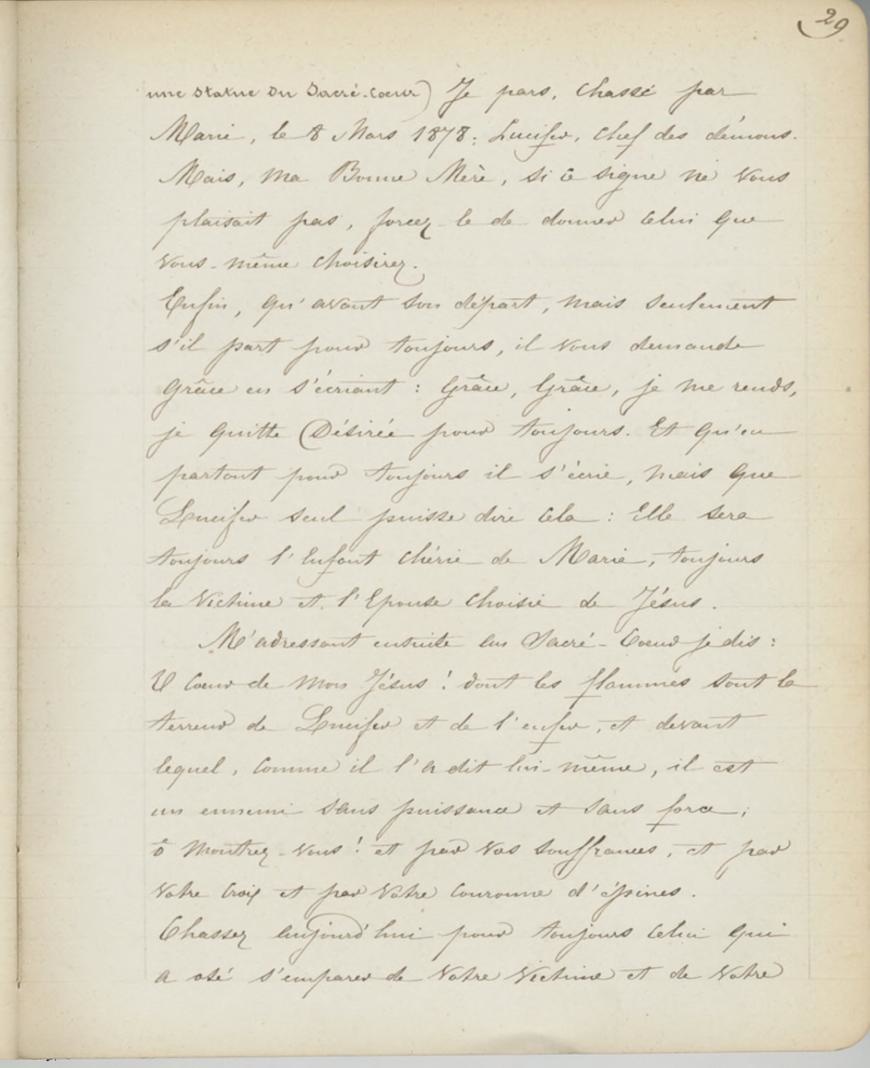 29
une statue du Sacré-Coeur) Je pars, chassé par
Marie, le 8 Mars 1878 : Lucifer, chef des démons.
Mais, ma Bonne Mère, si ce signe ne vous
plaisait pas, forcez-le de donner celui que
vous-même choisirez.
Enfin, qu'avant son départ, mais seulement
s'il part pour toujours, il vous demande
grâce en s'écriant : Grâce, Grâce, je me rends,
je quitte Désirée pour toujours. Et qu'en
partant pour toujours il s'écrie, mais que
Lucifer seul puisse dire cela : Elle sera
toujours l'Enfant chérie de Marie, toujours
la Victime et l'Epouse choisie de Jésus.
M'adressant ensuite au Sacré-Coeur je dis :
O Coeur de mon Jésus ! dont les flammes sont la
terreur de Lucifer et de l'enfer, et devant
lequel, comme il l'a dit lui-même, il est
un ennemi sans puissance et sans force ;
ô montrez-vous ! et par vos souffrances, et par
votre croix et par votre couronne d'épines.
Chassez aujourd'hui pour toujours celui qui
a osé s'emparer de votre Victime et de votre